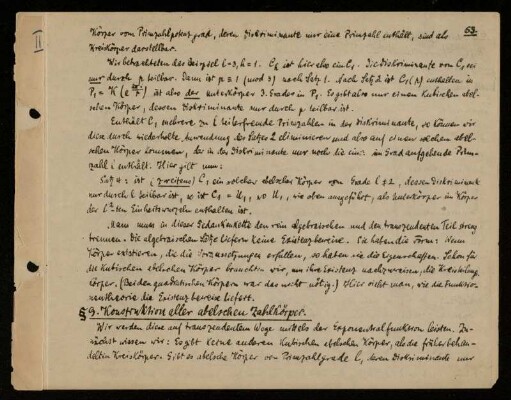 53.
II
Körper vom Primzahlpotenzgrad, deren Diskriminante nur eine Primzahl enthält, sind als
Kreiskörper darstellbar.
Wir betrachten das Beispiel l=3, h=1. C₁ ist hier also ein C₁. Die Diskriminante von C₁ sei
nur durch p teilbar. Dann ist p ≡ 1 (mod 3) nach Satz 1. Nach Satz 2 ist C₁ (p) enthalten in
ist also der Unterkörper 3. Grades in P₁. Es gibt also nur einen kubischen abel-
schen Körper, dessen Diskriminante nur durch p teilbar ist.
Enthält C₁ mehrere zu l teilerfremde Primzahlen in der Diskriminante, so können wir
diese durch wiederholte Anwendung des Satzes 2 eliminieren und also auf einen solchen abel-
schen Körper kommen, der in der Diskriminante nur noch die eine im Grad aufgehende Prim-
zahl l enthält. Hier gilt nun:
Satz 4: ist (zweitens) C₁ ein solcher abelscher Körper vom Grade l ≠ 2, dessen Diskriminante
nur durch l teilbar ist, so ist C₁ = U₁, wo U₁, wie oben angeführt, als Unterkörper im Körper
der l²ten Einheitswurzeln enthalten ist.
Kann man in dieser Gedankenkette den rein algebraischen und den transzendenten Teil streng
trennen. Die algebraischen Sätze liefern keine Existenzbeweise. Sie haben die Form: Wenn
Körper existieren, die die Voraussetzungen erfüllen, so haben sie die Eigenschaften. Schon für
die kubischen abelschen Körper brauchten wir, um ihre Existenz nachzuweisen, die Kreisteilungs-
körper. (Bei den quadratischen Körpern war das nicht nötig.) Hier sieht man, wie die Funktio-
nentheorie die Existenzbeweise liefert.
§ 9. Konstruktion aller abelschen Zahlkörper.
Wir werden diese auf transzendentem Wege mittels der Exponentialfunktion leisten. Zu-
nächst wissen wir: Es gibt keine anderen kubischen abelschen Körper, als die früher behan-
delten Kreiskörper. Gibt es abelsche Körper vom Primzahlgrade l, deren Diskriminante nur